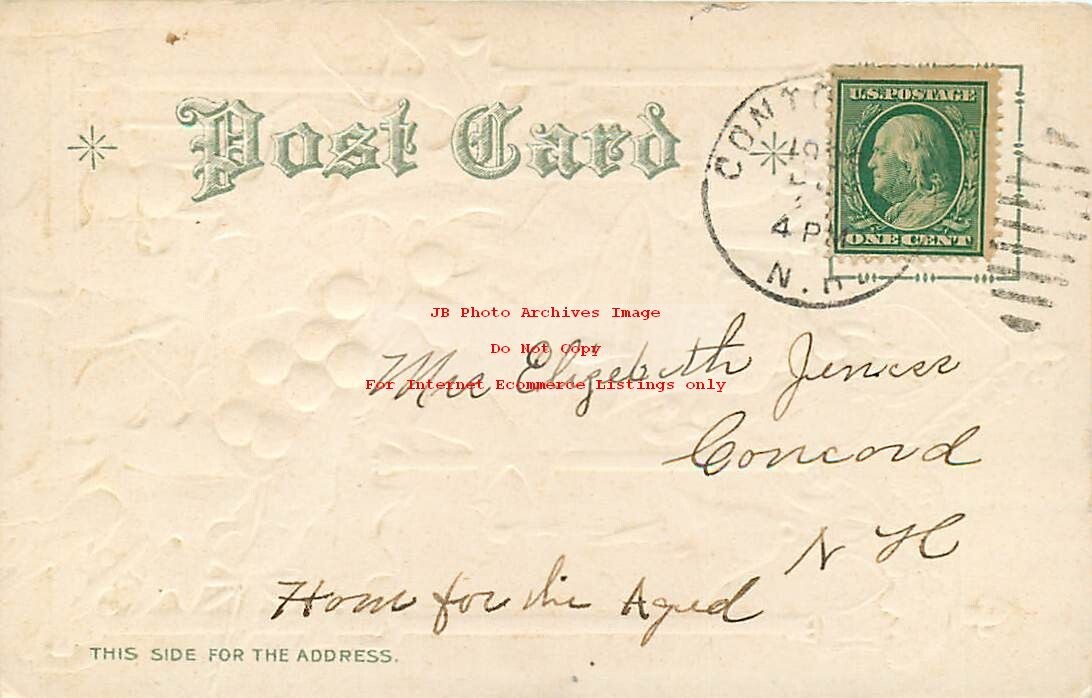 Post Card
U.S. POSTAGE
ONE CENT
CONTO
4 PM
N.H.
JB Photo Archives Image
Do Not Copy
For Internet Ecommerce Listings only
Mrs Elizabeth Jenness
Concord
N H
Home for the Aged
THIS SIDE FOR THE ADDRESS.